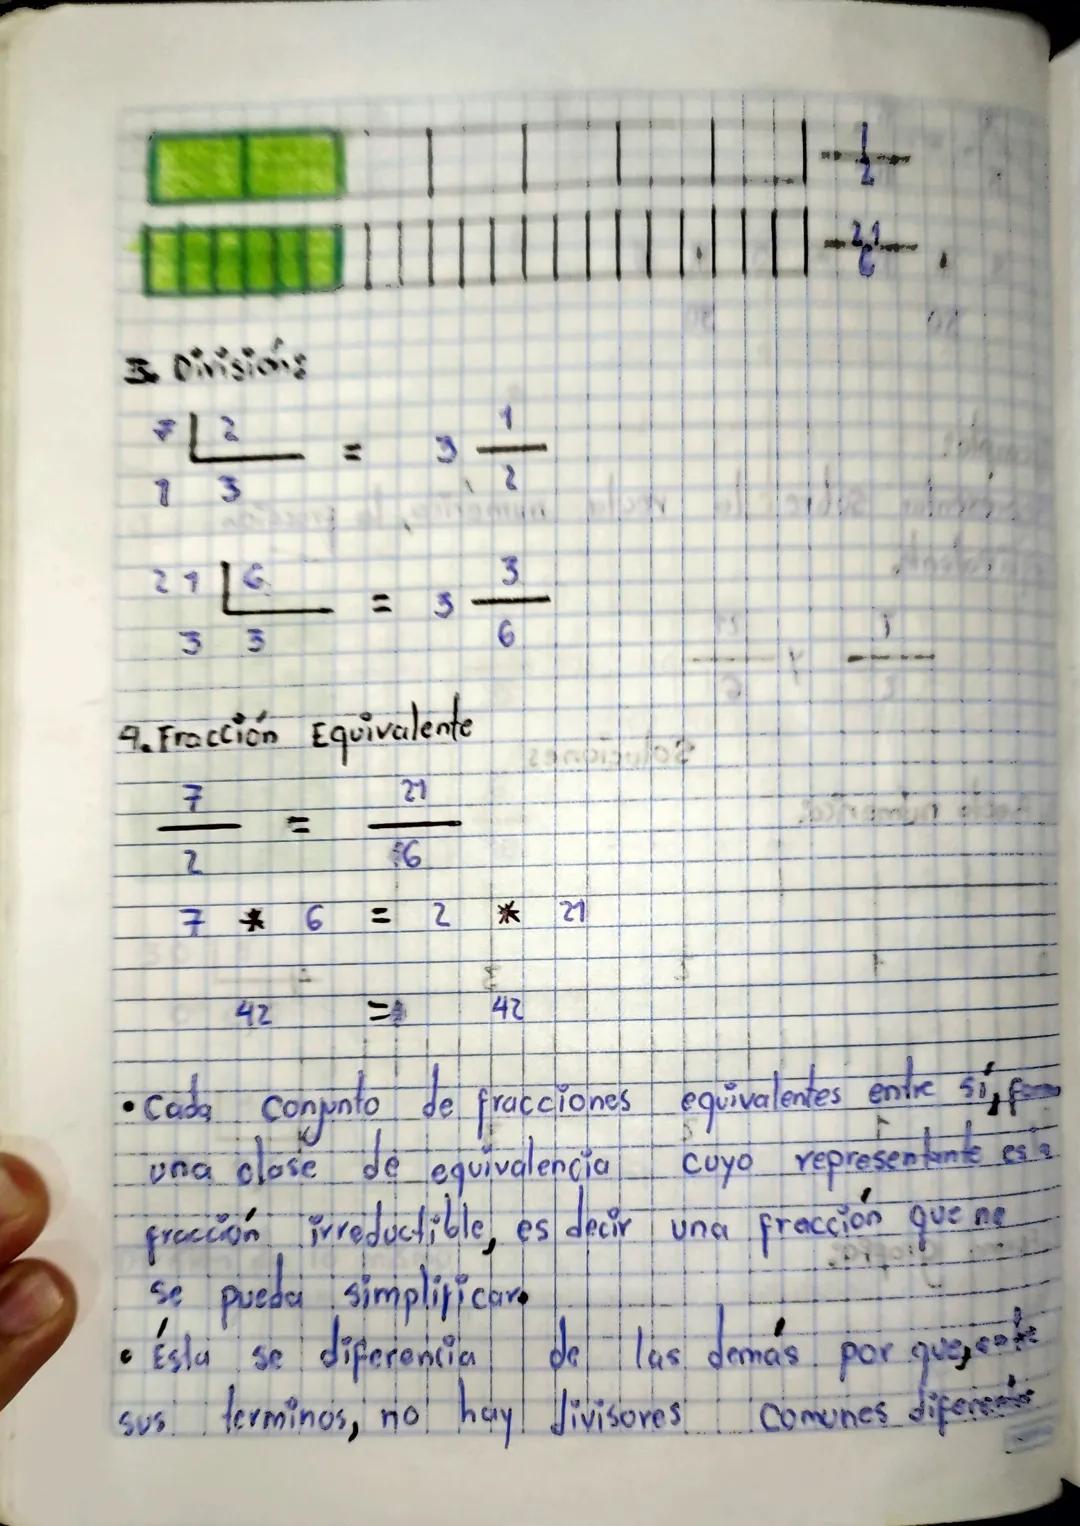 1
2
21
6
3. Divisións
7 2 = 3 1
1 3 2
21 6 = 3 3
3 3 6
4. Fracción Equivalente
7 = 21
2 6
7 * 6 = 2 * 21
42 = 42
• Cada conjunto de fracciones equivalentes entre sí,
una clase de equivalencia cuyo representante es
fracción irreductible, es decir una fracción que
se pueda simplificar.
• Ésta se diferencia de las demás por que,
sus terminos, no hay divisores comunes